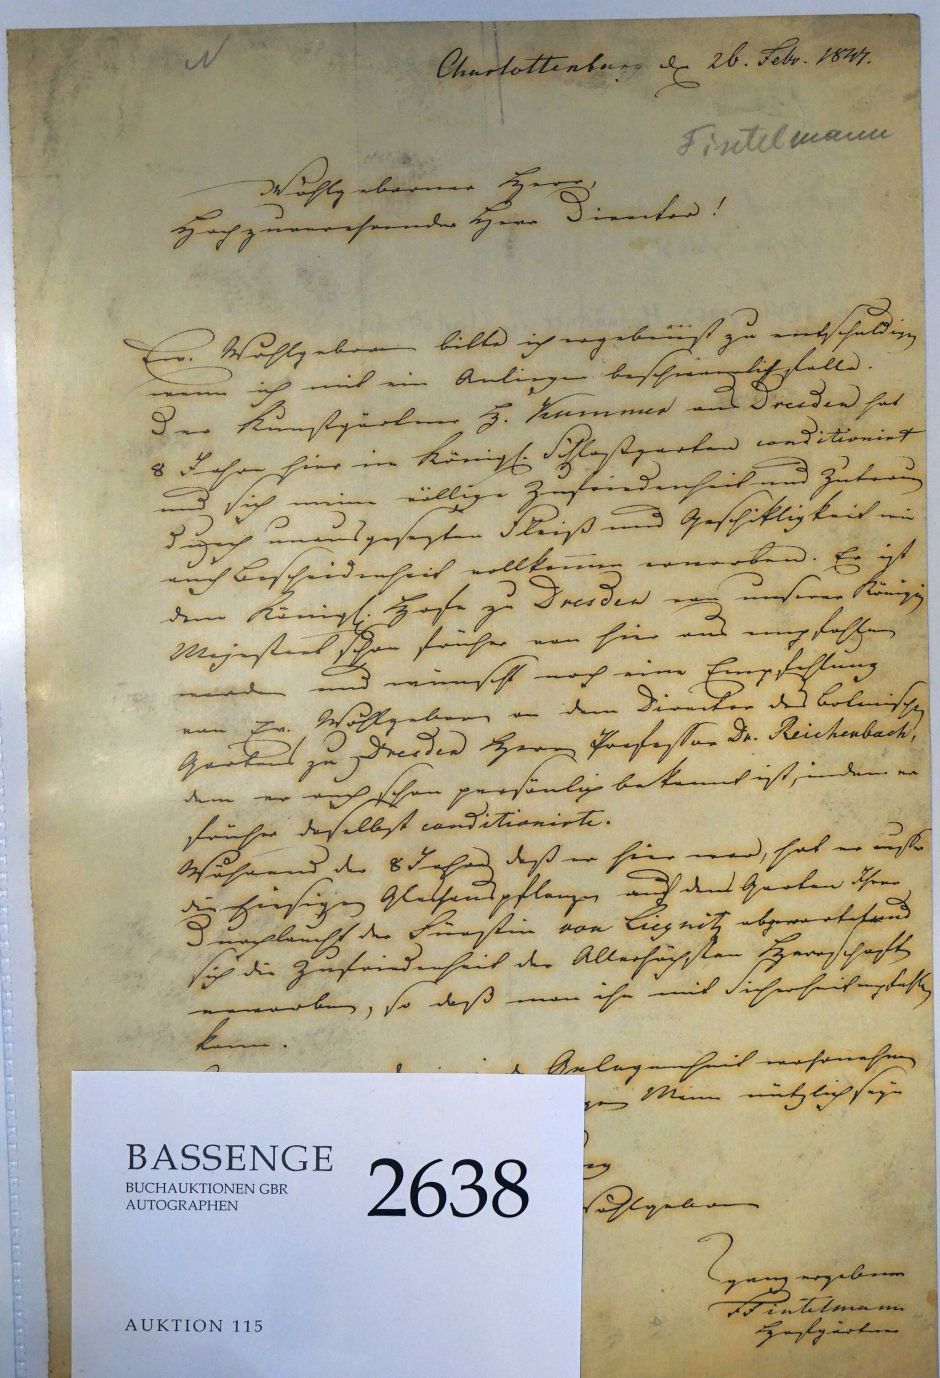 Charlottenburg d. 26. Febr. 1847.
Fintelmann
Wohlgeborner Herr,
Hochzuverehrender Herr Director!
Ew. Wohlgeboren bitte ich ergebenst zu entschuldigen
wenn ich mit ein Anliegen beschwerlich falle.
Der Kunstgärtner H. Kummer aus Dresden hat
8 Jahre hier im Königl. Schloßgarten conditionirt
und sich meine völlige Zufriedenheit und Zutrauen
durch unausgesetzten Fleiß und Geschikligkeit wie
auch Bescheidenheit vollkommen erworben. Er ist
dem Königl. Hofe zu Dresden von unserer Königin
Majestaet schon früher von hier aus empfohlen
worden und wünscht noch eine Empfehlung
von Ew. Wohlgeboren an dem Director des Botanischen
Gartens zu Dresden Herrn Professor Dr. Reichenbach,
dem er auch schon persönlich bekannt ist, indem er
früher daselbst conditionirte.
Während der 8 Jahre daß er hier war, hat er außer
die hiesigen Glashauspflanzen auch den Garten Ihrer
Durchlaucht der Fürstin von Liegnitz abgewartet und
sich die Zufriedenheit der Allerhöchsten Herrschaften
erworben, so daß man ihn mit Sicherheit empfehlen
kann.
Gelegenheit wahrnehmen
Mann nützlich seyn
Wohlgeboren
ganz ergebener
F Fintelmann
Hofgärtner
BASSENGE
BUCHAUKTIONEN GBR
AUTOGRAPHEN
2638
AUKTION 115